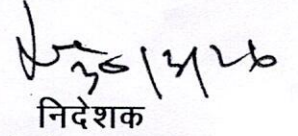 30/3/26
निदेशक